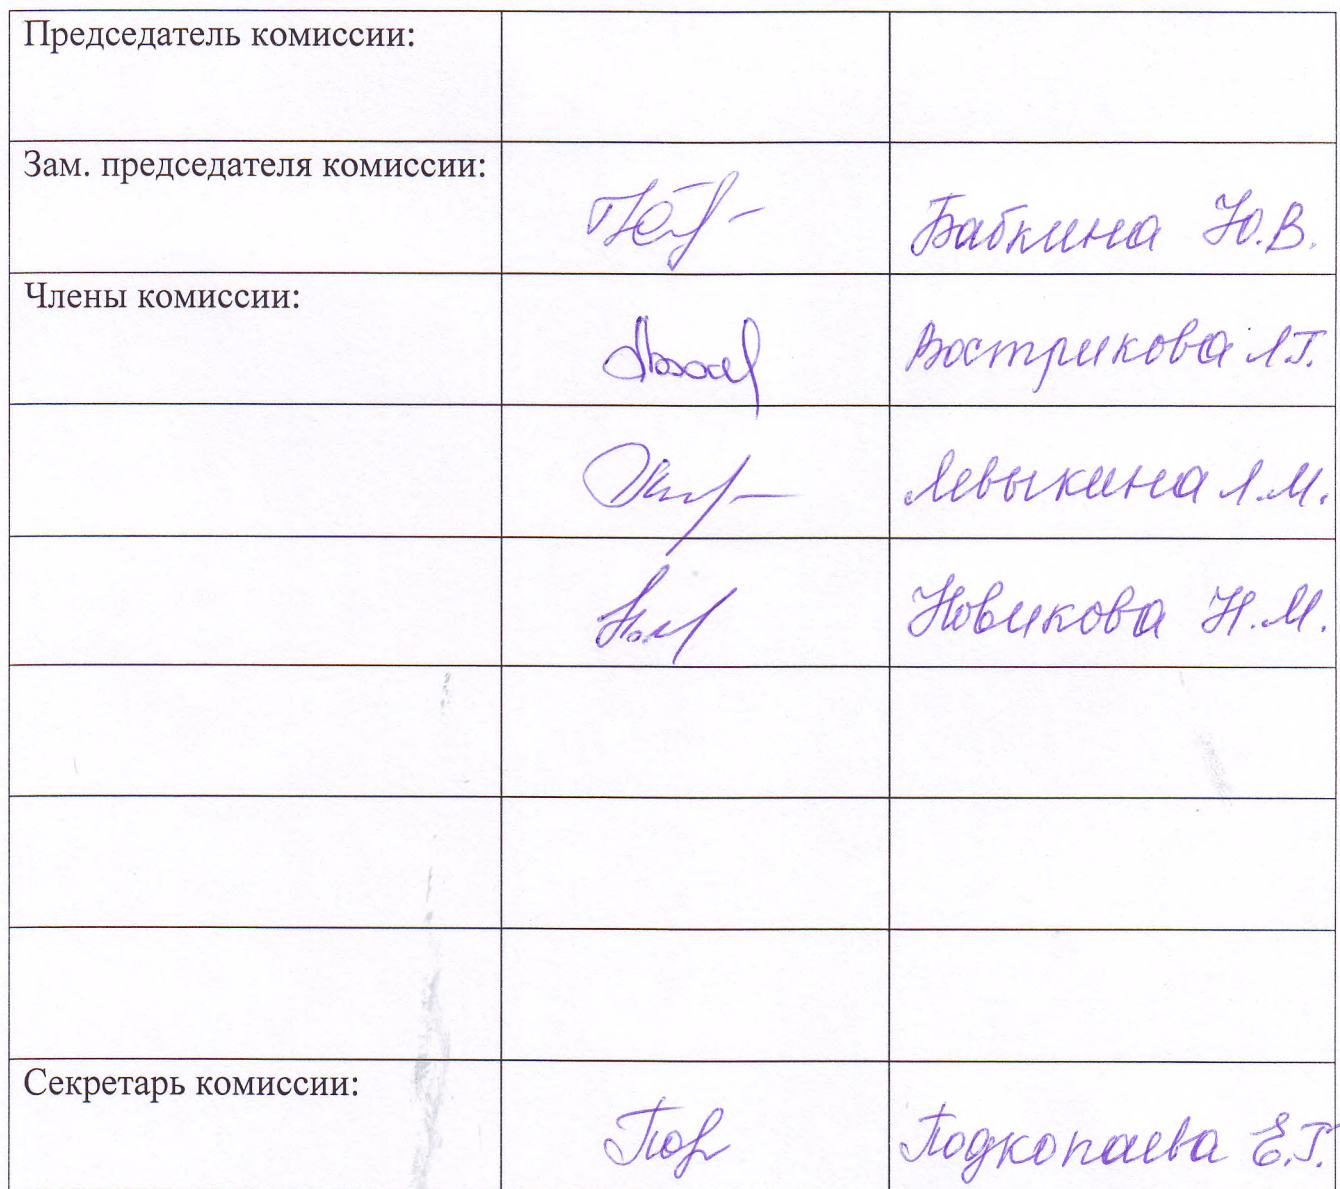 Председатель комиссии:
Зам. председателя комиссии:
Бабкина Ю.В.
Члены комиссии:
Вострикова Л.Г.
Левыкина Л.М.
Новикова Н.М.
Секретарь комиссии:
Подкопаева Е.Г.